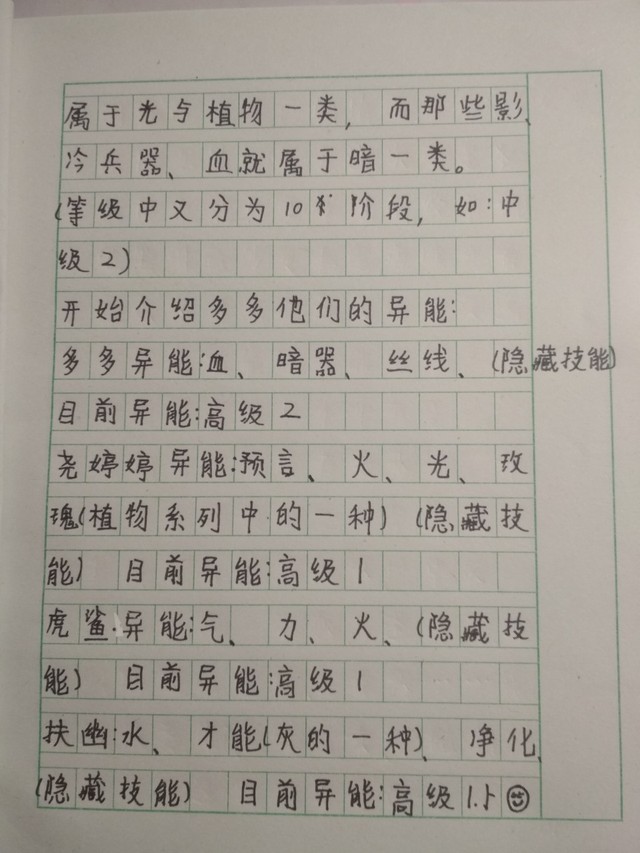 属于光与植物一类，而那些影、
冷兵器、血就属于暗一类。
(等级中又分为10个阶段，如：中
级2)
开始介绍多多他们的异能：
多多异能：血、暗器、丝线、(隐藏技能)
目前异能：高级2
尧婷婷异能：预言、火、光、玫
瑰(植物系列中的一种)(隐藏技
能) 目前异能：高级1
虎鲨·异能：气、力、火、(隐藏技
能) 目前异能：高级1
扶幽：水、才能(灰的一种)、净化、
(隐藏技能) 目前异能：高级1.5